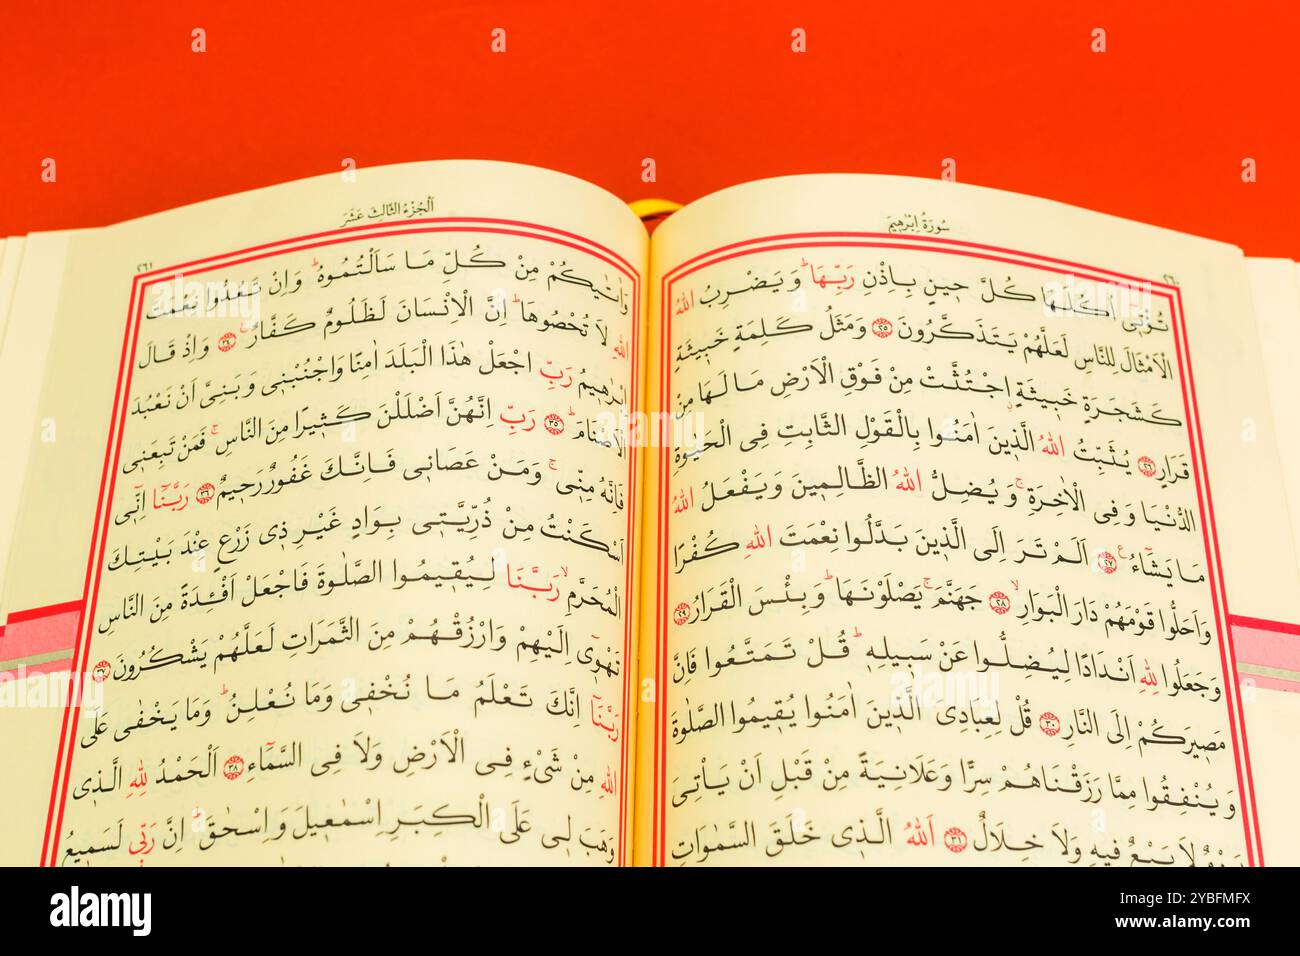 ٢٦٠
سُورَةُ اِبْرٰه۪يمَ
تُؤْت۪ٓى اُكُلَهَا كُلَّ ح۪ينٍ بِاِذْنِ رَبِّهَاۜ وَيَضْرِبُ اللّٰهُ
الْاَمْثَالَ لِلنَّاسِ لَعَلَّهُمْ يَتَذَكَّرُونَ ﴿٢٥﴾ وَمَثَلُ كَلِمَةٍ خَب۪يثَةٍ
كَشَجَرَةٍ خَب۪يثَةٍۨ اجْتُثَّتْ مِنْ فَوْقِ الْاَرْضِ مَا لَهَا مِنْ
قَرَارٍ ﴿٢٦﴾ يُثَبِّتُ اللّٰهُ الَّذ۪ينَ اٰمَنُوا بِالْقَوْلِ الثَّابِتِ فِى الْحَيٰوةِ
الدُّنْيَا وَفِى الْاٰخِرَةِۚ وَيُضِلُّ اللّٰهُ الظَّالِم۪ينَ وَيَفْعَلُ اللّٰهُ
مَا يَشَٓاءُ۟ ﴿٢٧﴾ اَلَمْ تَرَ اِلَى الَّذ۪ينَ بَدَّلُوا نِعْمَتَ اللّٰهِ كُفْرًا
وَاَحَلُّوا قَوْمَهُمْ دَارَ الْبَوَارِۙ ﴿٢٨﴾ جَهَنَّمَۚ يَصْلَوْنَهَاۜ وَبِئْسَ الْقَرَارُ ﴿٢٩﴾
وَجَعَلُوا لِلّٰهِ اَنْدَادًا لِيُضِلُّوا عَنْ سَب۪يلِه۪ۜ قُلْ تَمَتَّعُوا فَاِنَّ
مَص۪يرَكُمْ اِلَى النَّارِ ﴿٣٠﴾ قُلْ لِعِبَادِىَ الَّذ۪ينَ اٰمَنُوا يُق۪يمُوا الصَّلٰوةَ
وَيُنْفِقُوا مِمَّا رَزَقْنَاهُمْ سِرًّا وَعَلَانِيَةً مِنْ قَبْلِ اَنْ يَاْتِىَ
يَوْمٌ لَا بَيْعٌ ف۪يهِ وَلَا خِلَالٌ ﴿٣١﴾ اَللّٰهُ الَّذ۪ى خَلَقَ السَّمٰوَاتِ
اَلْجُزْءُ الثَّالِثَ عَشَرَ
٢٦١
وَاٰتٰيكُمْ مِنْ كُلِّ مَا سَاَلْتُمُوهُۜ وَاِنْ تَعُدُّوا نِعْمَتَ
اللّٰهِ لَا تُحْصُوهَاۜ اِنَّ الْاِنْسَانَ لَظَلُومٌ كَفَّارٌ۟ ﴿٣٤﴾ وَاِذْ قَالَ
اِبْرٰه۪يمُ رَبِّ اجْعَلْ هٰذَا الْبَلَدَ اٰمِنًا وَاجْنُبْن۪ى وَبَنِىَّ اَنْ نَعْبُدَ
الْاَصْنَامَۜ ﴿٣٥﴾ رَبِّ اِنَّهُنَّ اَضْلَلْنَ كَث۪يرًا مِنَ النَّاسِۚ فَمَنْ تَبِعَن۪ى
فَاِنَّهُ مِنّ۪ىۚ وَمَنْ عَصَان۪ى فَاِنَّكَ غَفُورٌ رَح۪يمٌ ﴿٣٦﴾ رَبَّنَٓا اِنّ۪ٓى
اَسْكَنْتُ مِنْ ذُرِّيَّت۪ى بِوَادٍ غَيْرِ ذ۪ى زَرْعٍ عِنْدَ بَيْتِكَ
الْمُحَرَّمِۙ رَبَّنَا لِيُق۪يمُوا الصَّلٰوةَ فَاجْعَلْ اَفْـِٔدَةً مِنَ النَّاسِ
تَهْو۪ٓى اِلَيْهِمْ وَارْزُقْهُمْ مِنَ الثَّمَرَاتِ لَعَلَّهُمْ يَشْكُرُونَ ﴿٣٧﴾
رَبَّنَٓا اِنَّكَ تَعْلَمُ مَا نُخْف۪ى وَمَا نُعْلِنُۜ وَمَا يَخْفٰى عَلَى
اللّٰهِ مِنْ شَىْءٍ فِى الْاَرْضِ وَلَا فِى السَّمَٓاءِ ﴿٣٨﴾ اَلْحَمْدُ لِلّٰهِ الَّذ۪ى
وَهَبَ ل۪ى عَلَى الْكِبَرِ اِسْمٰع۪يلَ وَاِسْحٰقَۜ اِنَّ رَبّ۪ى لَسَم۪يعُ
alamy
Image ID: 2YBFMFX
www.alamy.com